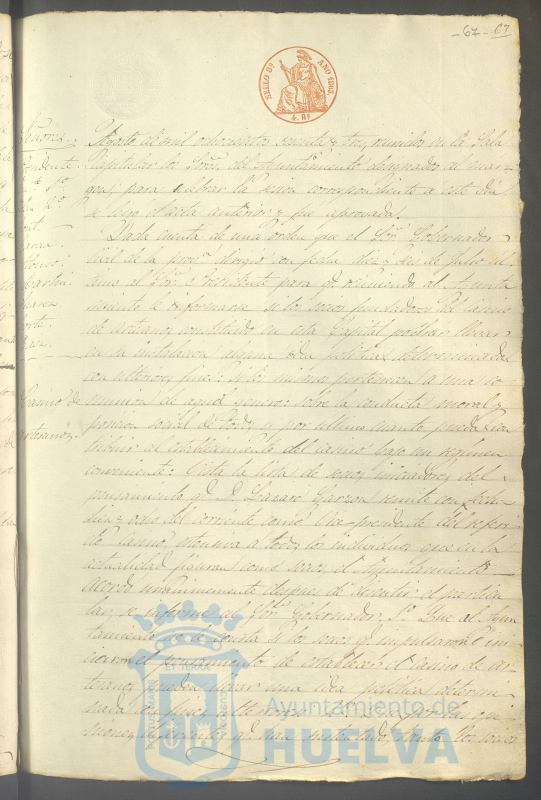 - 67 - 67
SELLO 8º AÑO 1863.
4. Rs
Agosto de mil ochocientos sesenta y tres, reunidos en la Sala
Capitular los Sres del Ayuntamiento designados al mar-
gen, para celebrar la sesion correspondiente a este dia
se leyó el acta anterior y fue aprovada.
Dada cuenta de una orden que el Sor Gobernador
civil de la prova dirige con fecha diez y seis de Julio
al Sor Presidente para q. reuniendo al Ayunta
miento se informara si los socios fundadores del casino
de artesanos constituido en esta Capital podran llevar
en su instalacion alguna idea politica determinada
con ulteriores fines: si los mismos pertenecen a una co
munion de aquel genero: sobre la conducta moral y
posicion social de todos y por ultimo cuanto pueda con
tribuir al establecimiento del casino bajo un regimen
conveniente: Vista la lista de socios iniciadores del
pensamiento q. D. Lazaro Garzon remite con fecha
diez y ocho del corriente como Vice-presidente del referi
do Casino, estensiva a todos los individuos que en la
actualidad figuran como socios, el Ayuntamiento
acordó unanimemente despues de discutir el particu
lar, se informe al Sor Gobernador: 1º Que al Ayun
tamiento no le consta si los socios q. impulsaron é ini
ciaron el pensamiento de establecer el casino de ar
tesanos, pueden llevar una idea politica determi
nada con fines ulteriores
Señores
Presidente
Martin
Suarez
Casino de
artesanos
Ayuntamiento de
HUELVA